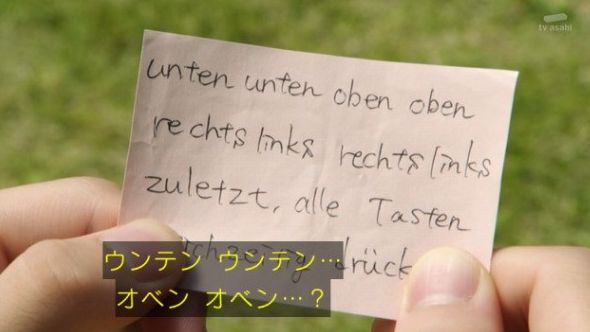 tv asahi
unten unten oben oben
rechts links rechts links
zuletzt, alle Tasten
drück
ウンテン ウンテン…
オベン オベン…？